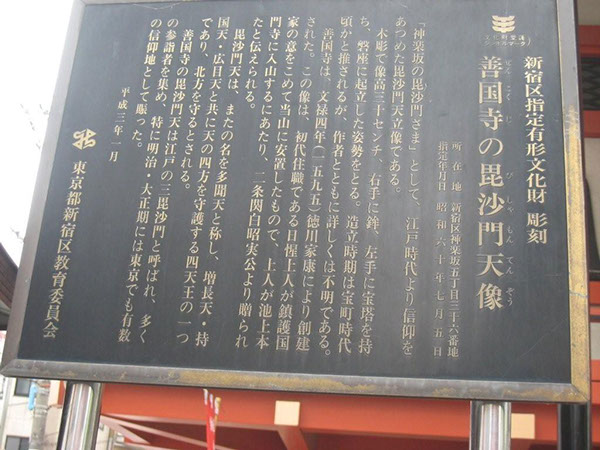 文化財愛護
シンボルマーク
新宿区指定有形文化財 彫刻
善国寺の毘沙門天像
ぜんこくじ びしゃもんてんぞう
所在地 新宿区神楽坂五丁目三十六番地
指定年月日 昭和六十年七月五日
「神楽坂の毘沙門さま」として、江戸時代より信仰を
あつめた毘沙門天立像である。
木彫で像高三十センチ、右手に鉾、左手に宝塔を持
ち、磐座に起立した姿勢をとる。造立時期は室町時代
頃かと推されるが、作者とともに詳しくは不明である。
善国寺は、文禄四年(一五九五)徳川家康により創建
された。この像は、初代住職である日惺上人が鎮護国
家の意をこめて当山に安置したもので、上人が池上本
門寺に入山するにあたり、二条関白昭実公より贈られ
たと伝えられる。
毘沙門天は、またの名を多聞天と称し、増長天・持
国天・広目天と共に天の四方を守護する四天王の一つ
であり、北方を守るとされる。
善国寺の毘沙門天は江戸の三毘沙門と呼ばれ、多く
の参詣者を集め、特に明治・大正期には東京でも有数
の信仰地として賑った。
平成三年一月
東京都新宿区教育委員会